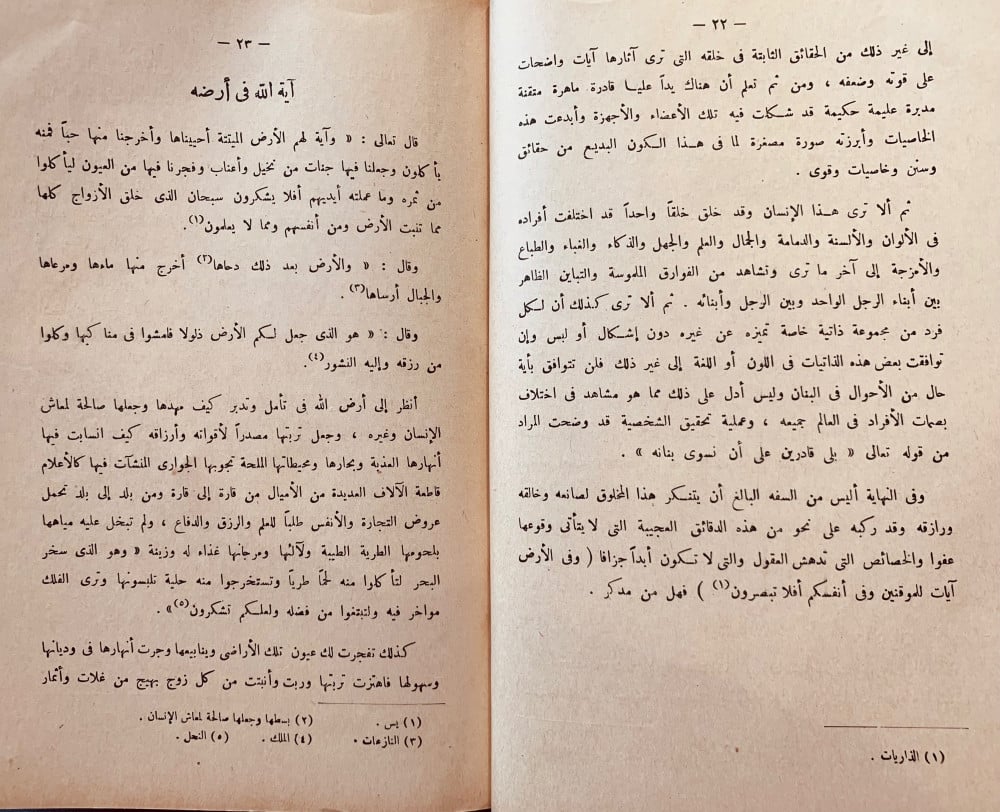 — ٢٢ —
إلى غير ذلك من الحقائق الثابتة فى خلقه التى ترى آثارها آيات واضحات
على قوته وضعفه ، ومن ثم تعلم أن هناك يداً عليا قادرة ماهرة متقنة
مدبرة عليمة حكيمة قد شكلت فيه تلك الأعضاء والأجهزة وأبدعت هذه
الخاصيات وأبرزته صورة مصغرة لما فى هذا الكون البديع من حقائق
وسنن وخاصيات وقوى .
ثم ألا ترى هذا الإنسان وقد خلق خلقاً واحداً قد اختلفت أفراده
فى الألوان والألسنة والدمامة والجمال والعلم والجهل والذكاء والغباء والطباع
والأمزجة إلى آخر ما ترى وتشاهد من الفوارق الملموسة والتباين الظاهر
بين أبناء الرجل الواحد وبين الرجل وأبنائه . ثم ألا ترى كذلك أن لكل
فرد من مجموعة ذاتية خاصة تميزه عن غيره دون إشكال أو لبس وإن
توافقت بعض هذه الذاتيات فى اللون أو اللغة إلى غير ذلك فلن تتوافق بأية
حال من الأحوال فى البنان وليس أدل على ذلك مما هو مشاهد فى اختلاف
بصمات الأفراد فى العالم جميعه ، وعملية تحقيق الشخصية قد وضحت المراد
من قوله تعالى « بلى قادرين على أن نسوى بنانه » .
وفى النهاية أليس من السفه البالغ أن يتنكر هذا المخلوق لصانعه وخالقه
ورازقه وقد ركبه على نحو من هذه الدقائق العجيبة التى لا يتأتى وقوعها
عفوا والخصائص التى تدهش العقول والتى لا تكون أبداً جزافا ( وفى الأرض
آيات للموقنين وفى أنفسكم أفلا تبصرون(١) ) فهل من مدكر .
(١) الذاريات .
— ٢٣ —
آية الله فى أرضه
قال تعالى : « وآية لهم الأرض الميتة أحييناها وأخرجنا منها حباً فمنه
يأكلون وجعلنا فيها جنات من نخيل وأعناب وفجرنا فيها من العيون ليأكلوا
من ثمره وما عملته أيديهم أفلا يشكرون سبحان الذى خلق الأزواج كلها
مما تنبت الأرض ومن أنفسهم ومما لا يعلمون(١).
وقال : « والأرض بعد ذلك دحاها(٢) أخرج منها ماءها ومرعاها
والجبال أرساها(٣) .
وقال : « هو الذى جعل لكم الأرض ذلولا فامشوا فى مناكبها وكلوا
من رزقه وإليه النشور(٤).
أنظر إلى أرض الله فى تأمل وتدبر كيف مهدها وجعلها صالحة لمعاش
الإنسان وغيره ، وجعل تربتها مصدراً لأقواته وأرزاقه كيف انسابت فيها
أنهارها العذبة وبحارها ومحيطاتها الملحة تجوبها الجوارى المنشآت فيها كالأعلام
قاطعة الآلاف العديدة من الأميال من قارة إلى قارة ومن بلد إلى بلد تحمل
عروض التجارة والأنفس طلباً للعلم والرزق والدفاع ، ولم تبخل عليه مياهها
بلحومها الطرية الطيبة ولآلئها ومرجانها غذاء له وزينة « وهو الذى سخر
البحر لتأكلوا منه لحماً طرياً وتستخرجوا منه حلية تلبسونها وترى الفلك
مواخر فيه ولتبتغوا من فضله ولعلكم تشكرون(٥)» .
كذلك تفجرت لك عيون تلك الأراضى وينابيعها وجرت أنهارها فى وديانها
وسهولها فاهتزت تربتها وربت وأنبتت من كل زوج بهيج من غلات وأثمار
(١) يس . (٢) بسطها وجعلها صالحة لمعاش الإنسان .
(٣) النازعات . (٤) الملك . (٥) النحل .